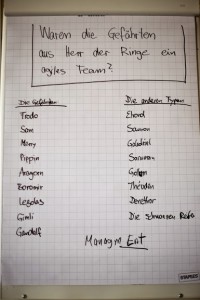 Waren die Gefährten
aus Herr der Ringe ein
agiles Team?
Die Gefährten
Frodo
Sam
Merry
Pippin
Aragorn
Boromir
Legolas
Gimli
Gandalf
Die anderen Typen
Elrond
Sauron
Galadriel
Saruman
Gollum
Théoden
Denethor
Die schwarzen Reiter
Managm Ent